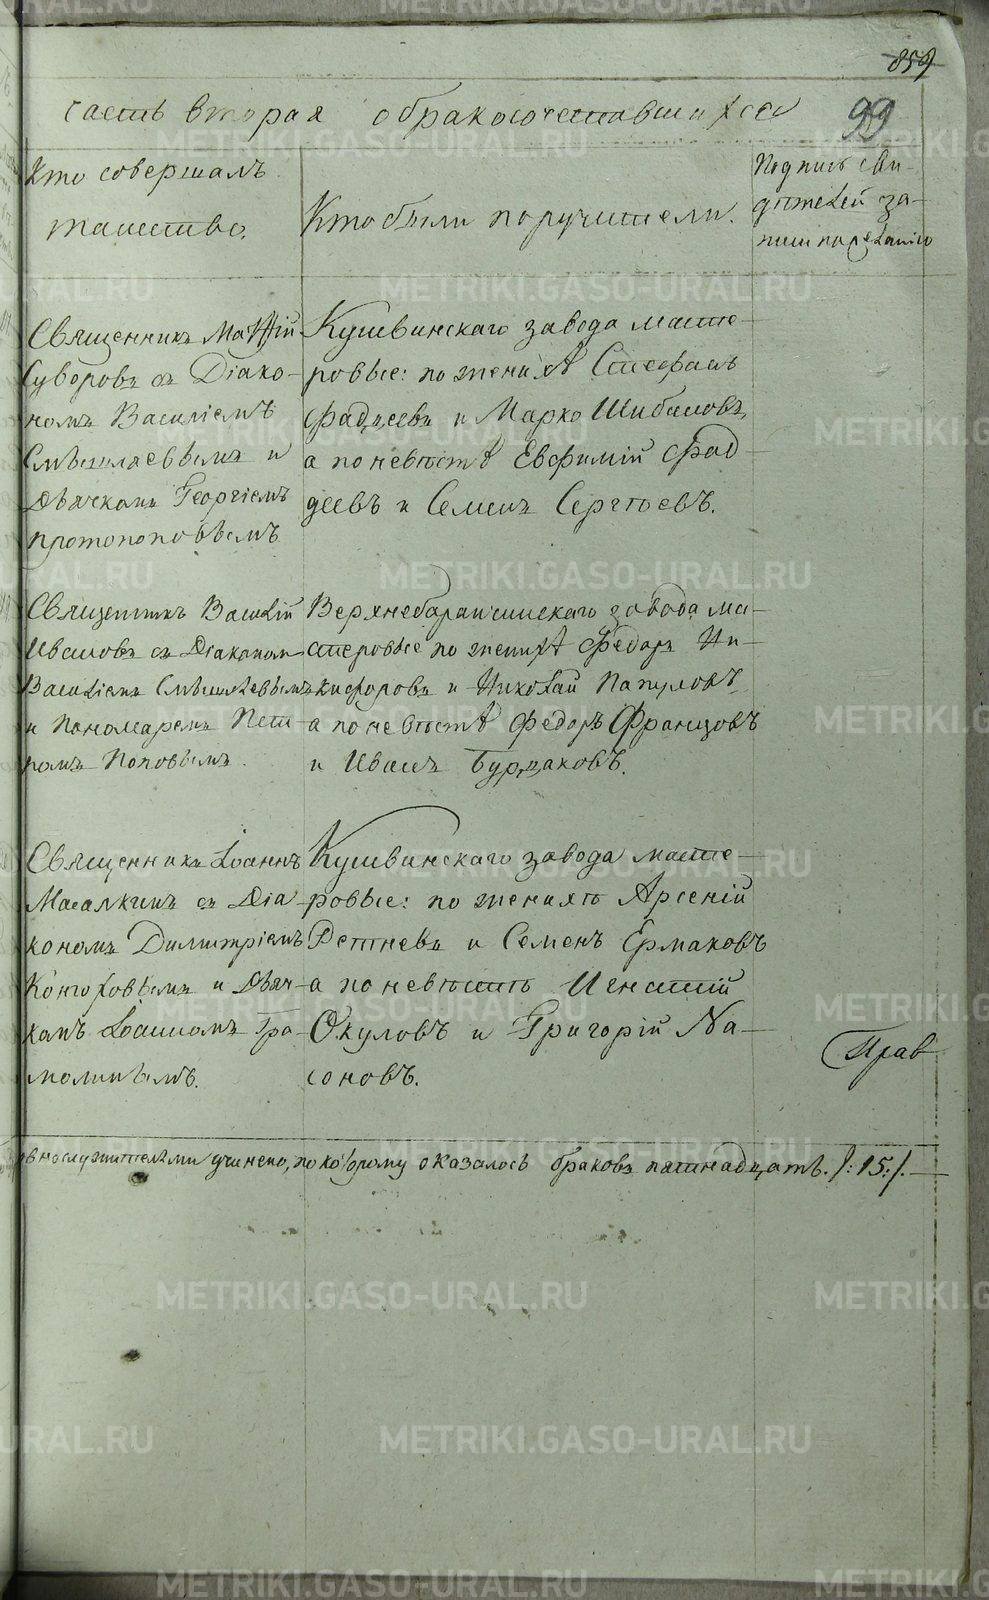 859
часть вторая о бракосочетавшихся
99
Кто совершалъ
таинство.
Кто были поручители.
Подпись сви-
дѣтелей за-
писи по желанiю
Священникъ Матѳiй
Суворовъ съ Дiако-
номъ Василiемъ
Смышляевымъ и
Дьячкомъ Георгiемъ
Протопоповымъ
Кушвинскаго завода масте-
ровые: по женихѣ Стефанъ
Фаддеевъ и Марко Шибановъ,
а по невѣстѣ Евфимiй Фад-
деевъ и Семенъ Сергѣевъ.
Священникъ Василiй
Ивановъ съ Дiакономъ
Василiемъ Смышляевымъ
и Пономаремъ Пет-
ромъ Поповымъ.
Верхнебаранчинскаго завода ма-
стеровые по женихѣ Федоръ Ни-
кифоровъ и Николай Папуловъ,
а по невѣстѣ Федоръ Французовъ
и Иванъ Бурдаковъ.
Священникъ Iоаннъ
Масалкинъ съ Дiа-
кономъ Димитрiемъ
Конюховымъ и Дьяч-
комъ Iоанномъ Гра-
молинымъ.
Кушвинскаго завода масте-
ровые: по женихѣ Арсенiй
Ретневъ и Семенъ Ермаковъ
а по невѣстѣ Игнатiй
Окуловъ и Григорiй На-
соновъ.
Прав
вно служителями учинено, по которому оказалось браковъ пятнадцать. /:15:/.
METRIKI.GASO-URAL.RU